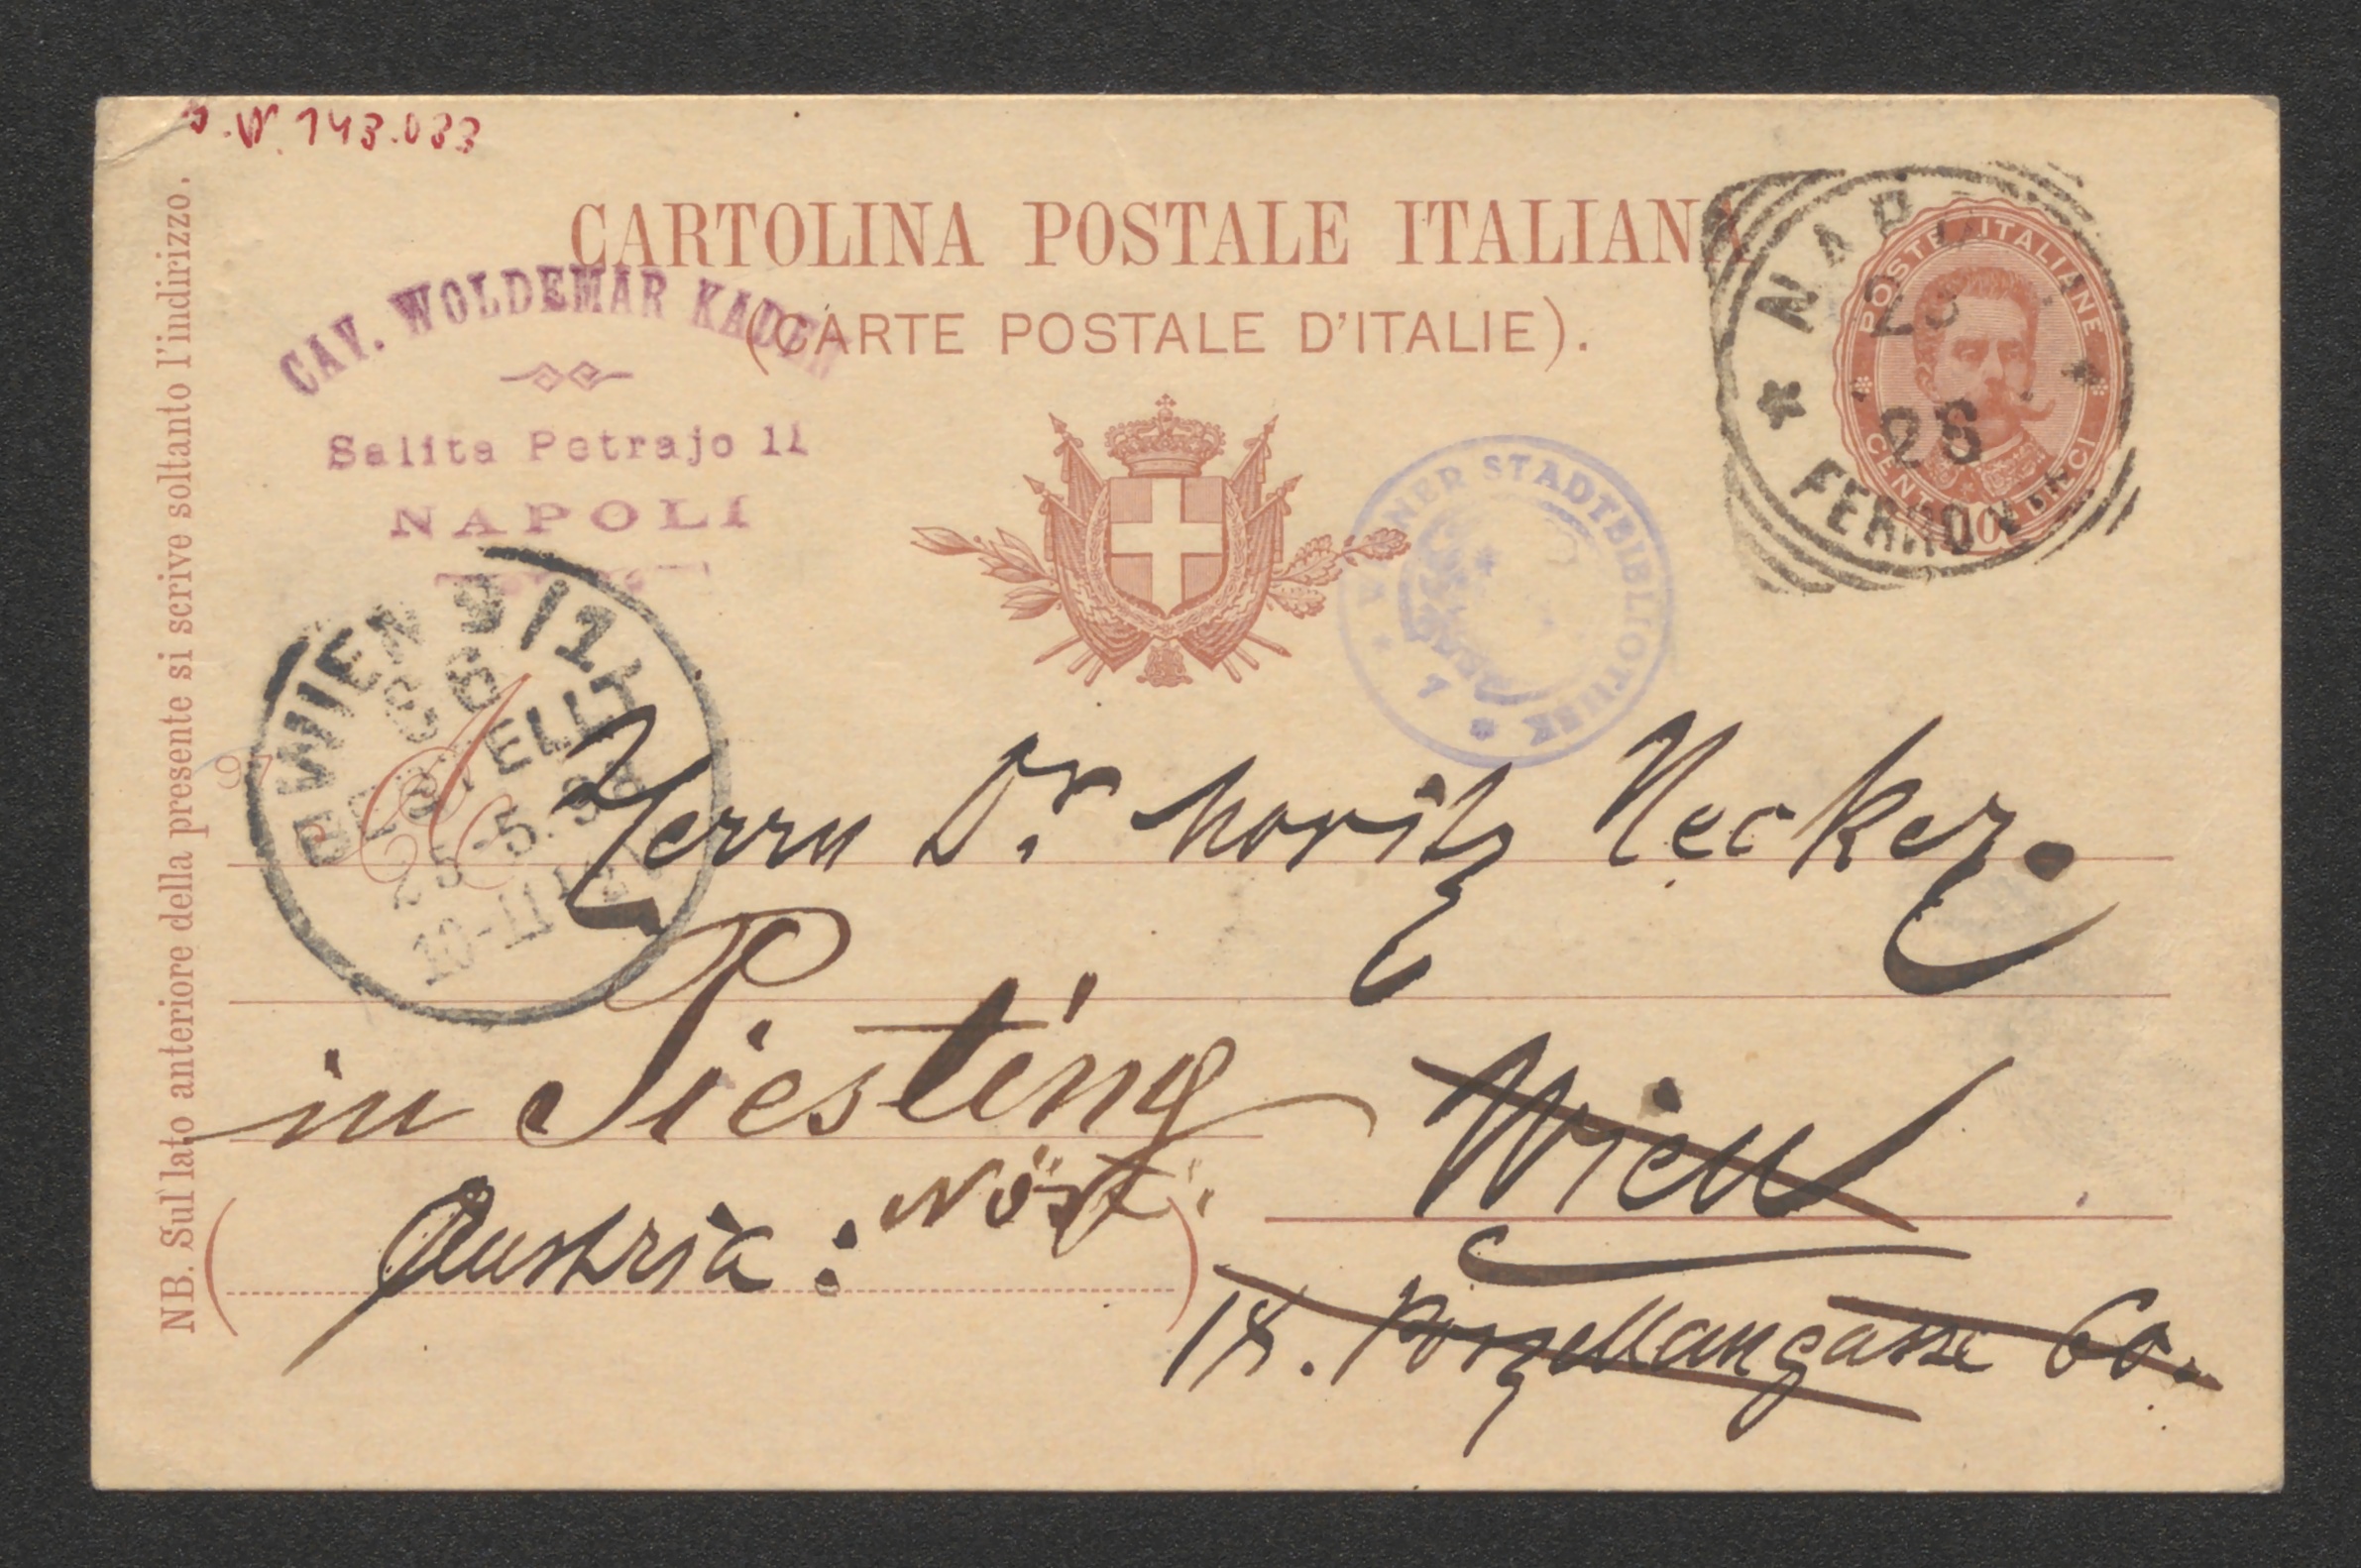 J.N. 143.033
CARTOLINA POSTALE ITALIANA
(CARTE POSTALE D'ITALIE).
CAV. WOLDEMAR KADEN
Salita Petrajo 11
NAPOLI
POSTE ITALIANE
CENT. 10
NAPOLI
FERROVIA
WIENER STADTBIBLIOTHEK
WIEN 9/1
66
BESTELLT
25.5.98
10-11
97
A
Herrn Dr Moritz Necker.
in Piesting
Wien
Austria: NÖst.
18. Porzellangasse 60.
NB. Sul lato anteriore della presente si scrive soltanto l'indirizzo.